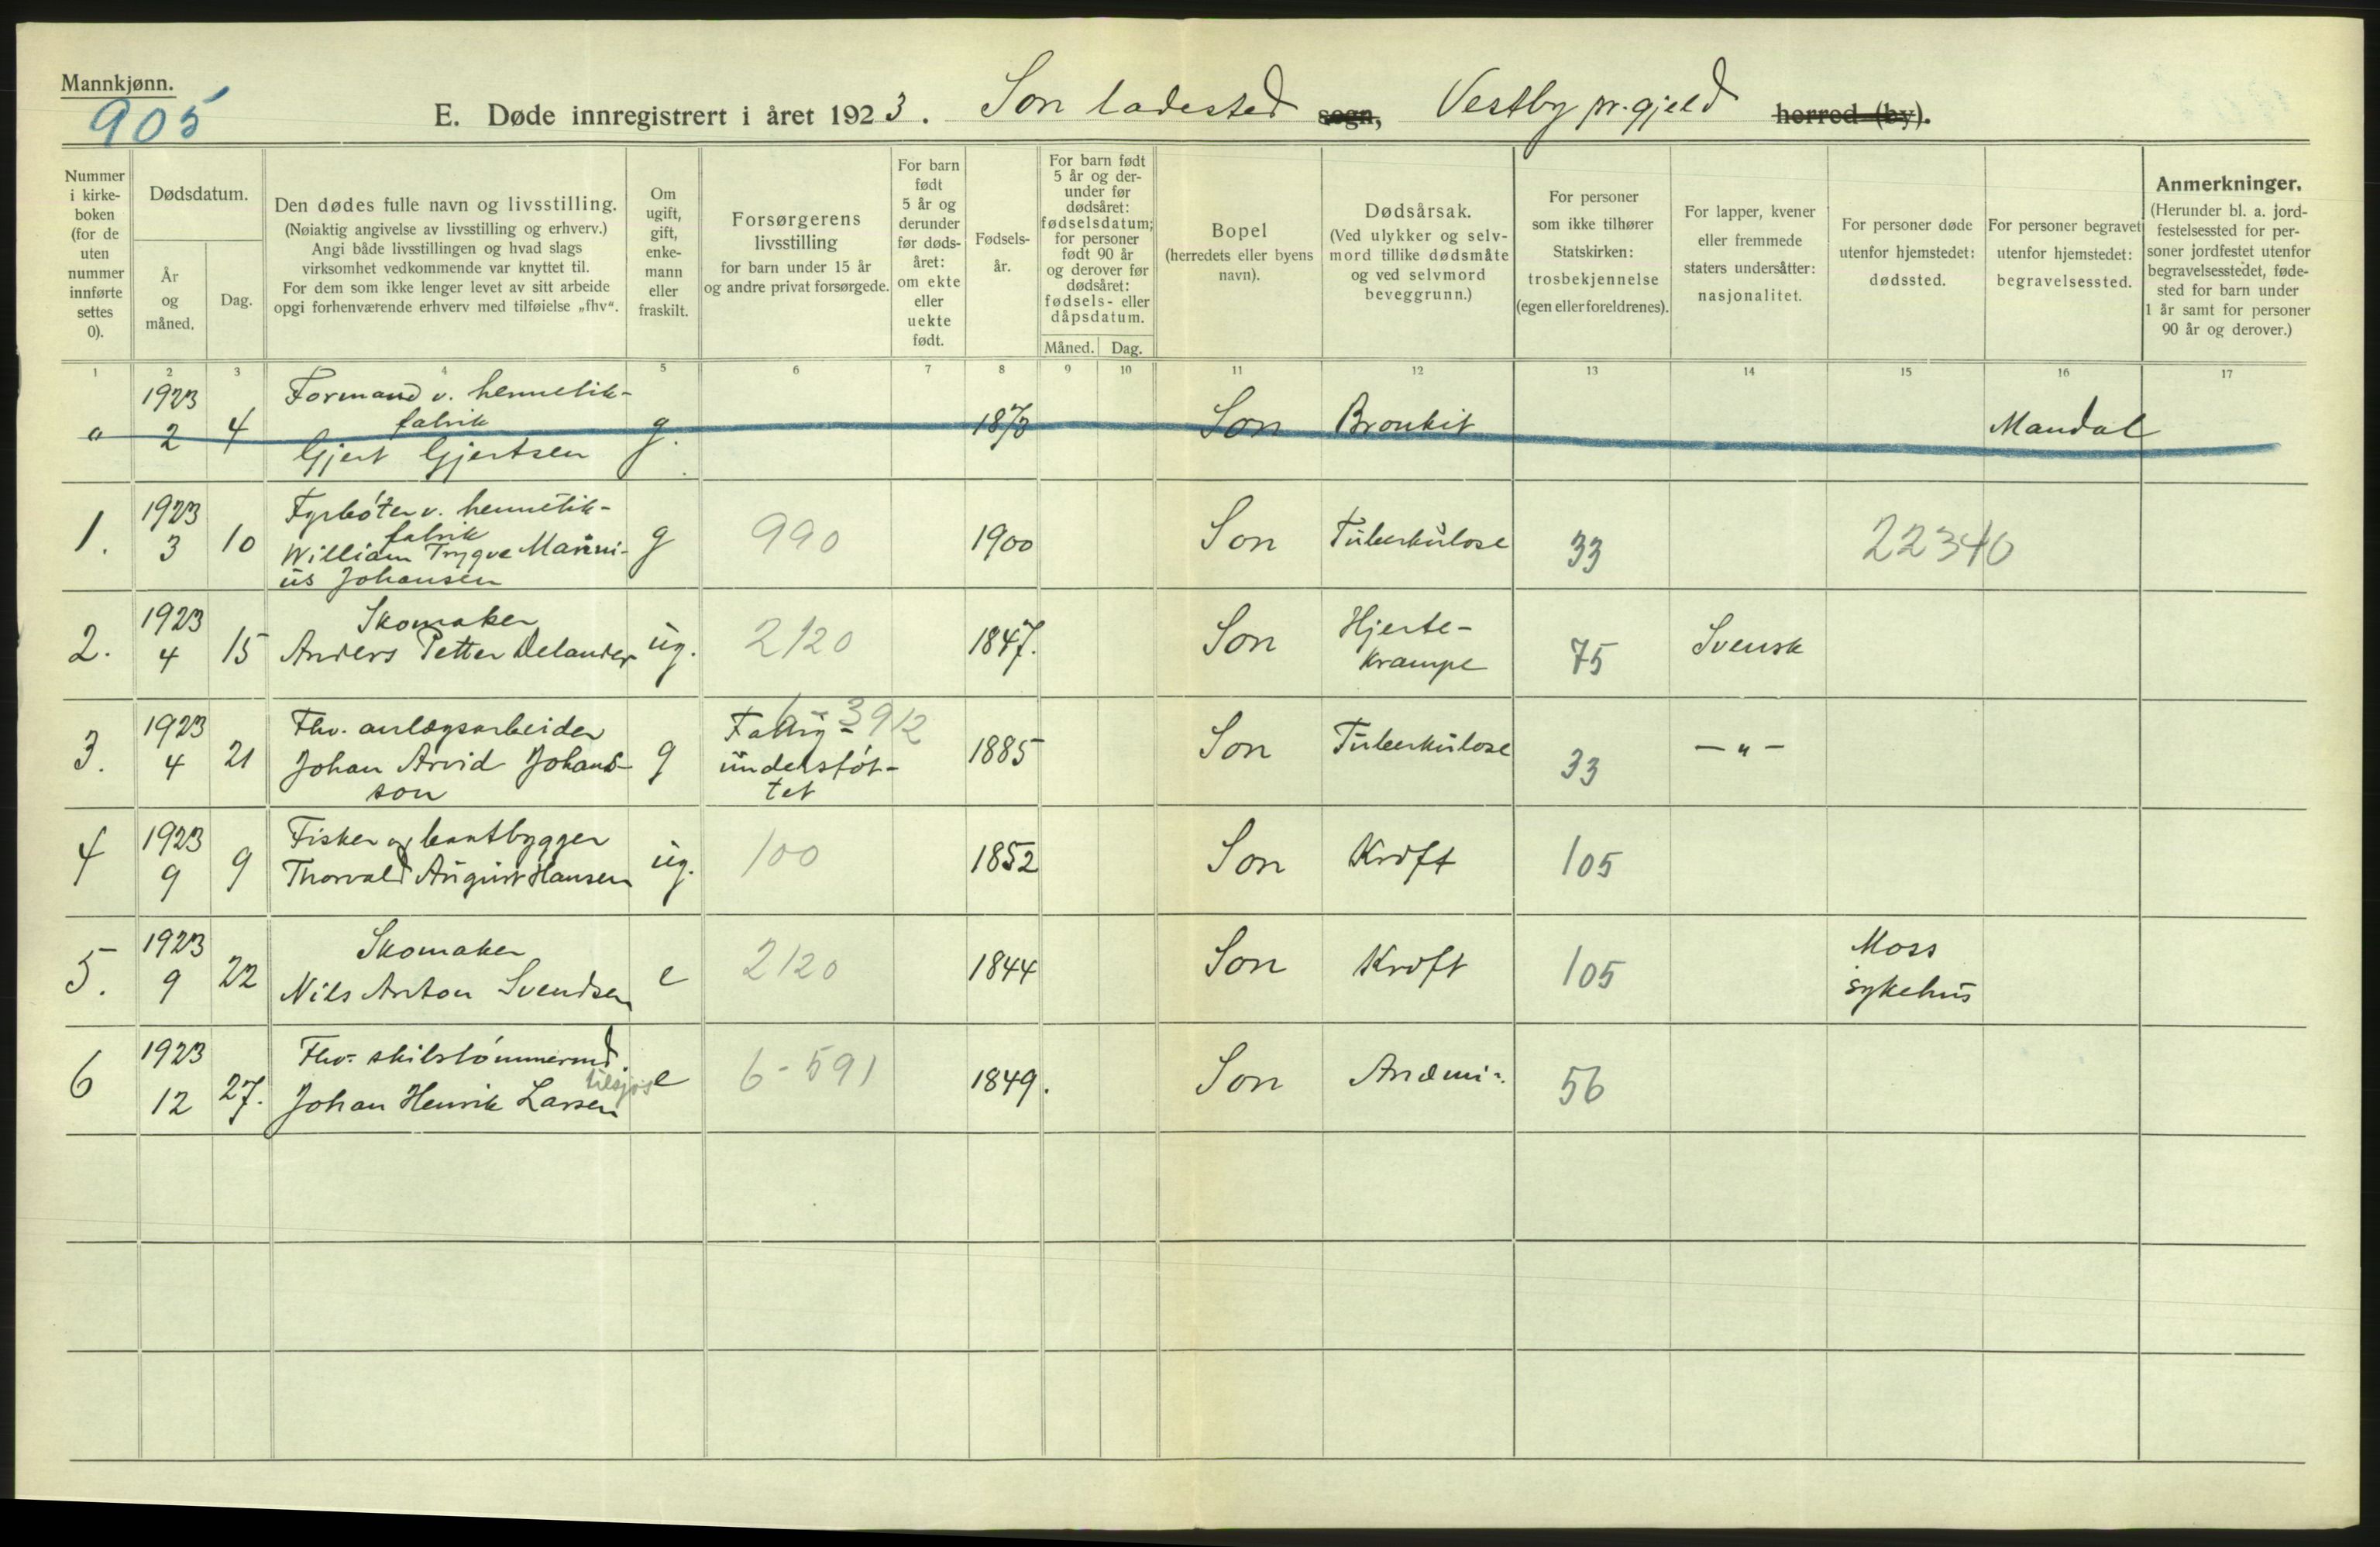 Mannkjønn.
905
E. Døde innregistrert i året 1923. Son ladested sogn, Vestby pr.gjeld herred (by).
Nummer i kirke-boken (for de uten nummer innførte settes 0).
Dødsdatum.
År og måned.
Dag.
Den dødes fulle navn og livsstilling.
(Nøiaktig angivelse av livsstilling og erhverv.)
Angi både livsstillingen og hvad slags
virksomhet vedkommende var knyttet til.
For dem som ikke lenger levet av sitt arbeide
opgi forhenværende erhverv med tilføielse „fhv“.
Om ugift, gift, enke-mann eller fraskilt.
Forsørgerens
livsstilling
for barn under 15 år
og andre privat forsørgede.
For barn født 5 år og derunder før døds-året: om ekte eller uekte født.
Fødsels-år.
For barn født 5 år og der-under før dødsåret: fødselsdatum; for personer født 90 år og derover før dødsåret: fødsels- eller dåpsdatum.
Måned. Dag.
Bopel
(herredets eller byens
navn).
Dødsårsak.
(Ved ulykker og selv-
mord tillike dødsmåte
og ved selvmord
beveggrunn.)
For personer
som ikke tilhører
Statskirken:
trosbekjennelse
(egen eller foreldrenes).
For lapper, kvener
eller fremmede
staters undersåtter:
nasjonalitet.
For personer døde
utenfor hjemstedet:
dødssted.
For personer begravet
utenfor hjemstedet:
begravelsessted.
Anmerkninger.
(Herunder bl. a. jord-
festelsessted for per-
soner jordfestet utenfor
begravelsesstedet, føde-
sted for barn under
1 år samt for personer
90 år og derover.)
1 2 3 4 5 6 7 8 9 10 11 12 13 14 15 16 17
1923 Formand v. hermetik-
" 2 4 fabrik g. 1873 Son Bronkit Mandal
Gjert Gjertsen
1923 Fyrbøter v. hermetik-
1. 3 10 fabrik g 990 1900 Son Tuberkulose 33 22340
William Trygve Marini-
us Johansen
1923 Skomaker
2. 4 15 Anders Petter Delander ug. 2120 1847. Son Hjerte-
krampe 75 Svensk
1923 Fhv. anlægsarbeider 6-3912
3. 4 21 Johan Arvid Johans-
son g Fattig-
understøt-
tet 1885 Son Tuberkulose 33 — " —
1923 Fisker og baatbygger
4 9 9 Thorvald August Hansen ug. 100 1852 Son Kræft 105
1923 Skomaker
5. 9 22 Nils Anton Svendsen e 2120 1844 Son Kræft 105 Moss
sykehus
1923 Fhv. skibstømmermd.
tilsjøs
6 12 27. Johan Henrik Larsen e 6-591 1849. Son Anæmi. 56